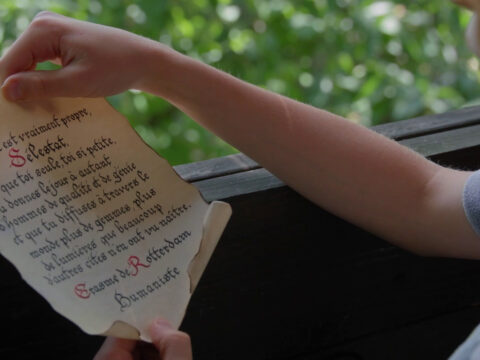 est vraiment propre,
Sélestat,
que toi seule toi si petite,
a donnes le jour à autant
d'hommes de qualité et de génie
et que tu diffuses à travers le
monde plus de gemmes, plus
de lumières que beaucoup
d'autres cités n'en ont vu naître.
Erasme de Rotterdam
Humaniste